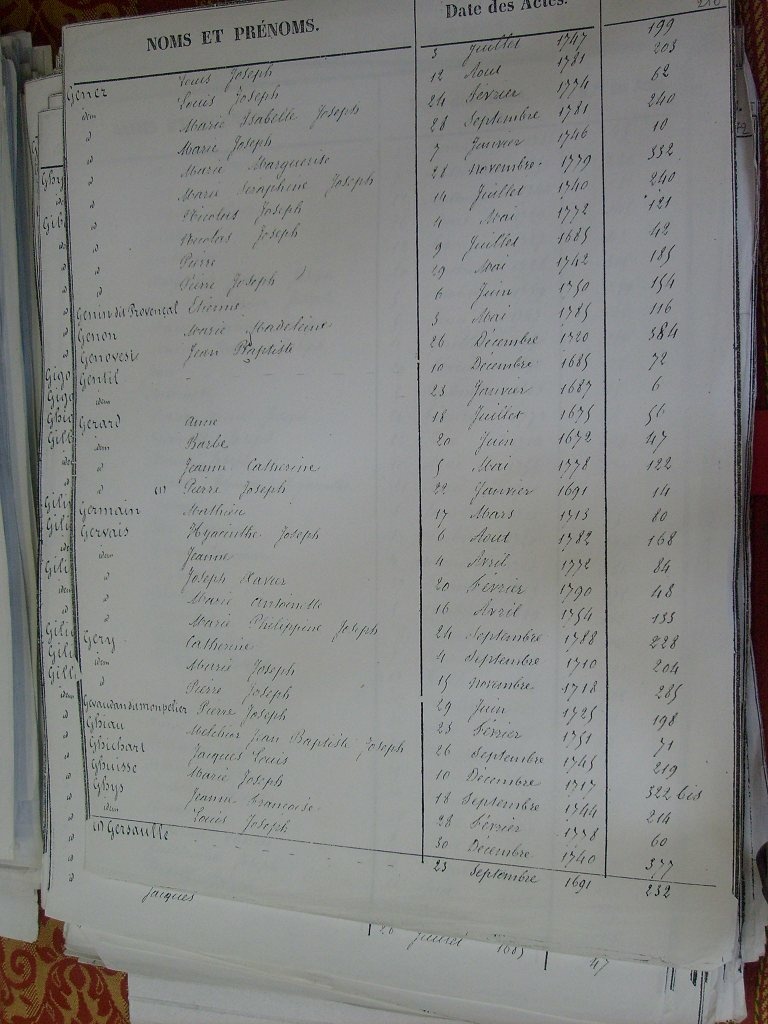 NOMS ET PRÉNOMS. Date des Actes.
Gener Louis Joseph 3 Juillet 1747 199
idem Louis Joseph 12 Aout 1781 203
d Marie Isabelle Joseph 24 Fevrier 1774 62
d Marie Joseph 28 Septembre 1781 240
d Marie Marguerite 7 Janvier 1746 10
d Marie Seraphine Joseph 28 novembre 1779 332
d Nicolas Joseph 14 Juillet 1740 240
d Nicolas Joseph 4 Mai 1772 121
d Pierre 9 Juillet 1685 42
d Pierre Joseph 29 Mai 1742 185
Genin dit Provençal Etienne 6 Juin 1750 154
Genon Marie Madeleine 3 Mai 1785 116
Genovese Jean Baptiste 26 Décembre 1720 384
Gentil 10 Décembre 1685 72
idem 23 Janvier 1687 6
Gerard Anne 18 Juillet 1675 56
idem Barbe 20 Juin 1672 47
d Jeanne Catherine 5 Mai 1778 122
d (1) Pierre Joseph 22 Janvier 1691 14
Germain Mathieu 17 Mars 1713 80
Gervais Hyacinthe Joseph 6 Aout 1782 168
idem Jeanne 4 Avril 1772 84
d Joseph Xavier 20 Février 1790 48
d Marie Antoinette 16 Avril 1754 133
d Marie Philippine Joseph 24 Septembre 1788 228
Gery Catherine 4 Septembre 1710 204
idem Marie Joseph 15 novembre 1718 285
d Pierre Joseph 29 Juin 1725 198
Gevaudan da Montpelier Pierre Joseph 23 Février 1751 71
Ghiau Melchior Jean Baptiste Joseph 26 Septembre 1745 219
Ghichart Jacques Louis 10 Décembre 1717 322 bis
Ghuisse Marie Joseph 18 Septembre 1744 214
Ghys Jeanne Francoise 28 Février 1778 60
idem Louis Joseph 30 Décembre 1740 377
(1) Gersaulle 23 Septembre 1691 232
Jacques
47